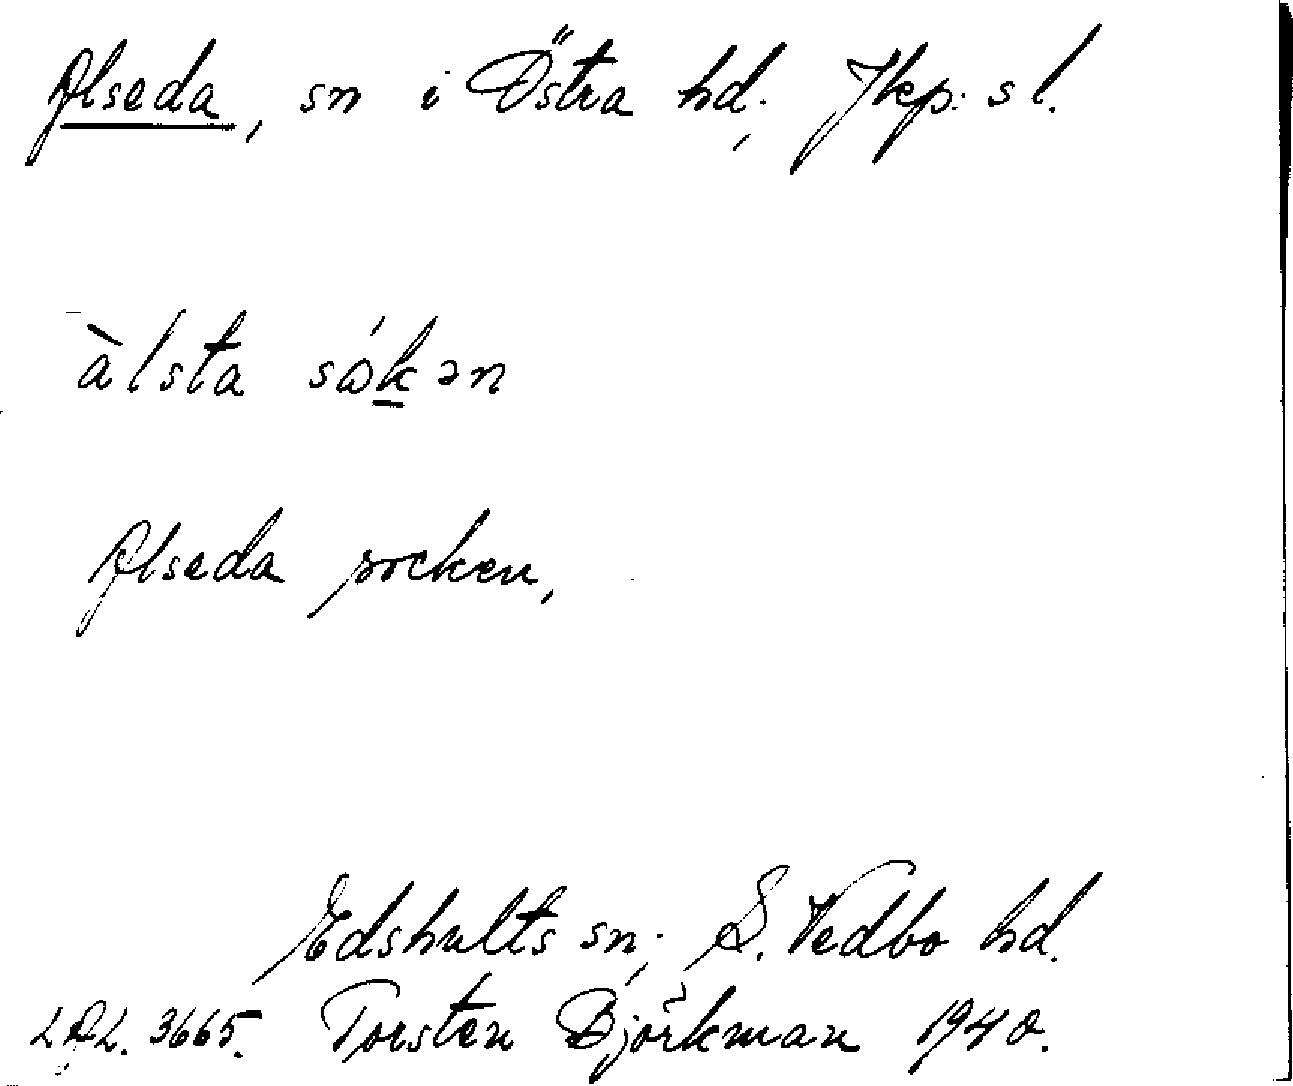 Alseda, sn i Östra hd, Jkp. sl.
àlsta sókən
Alseda socken,
Edshults sn, S. Vedbo hd.
LAL. 3665. Torsten Björkman 1940.